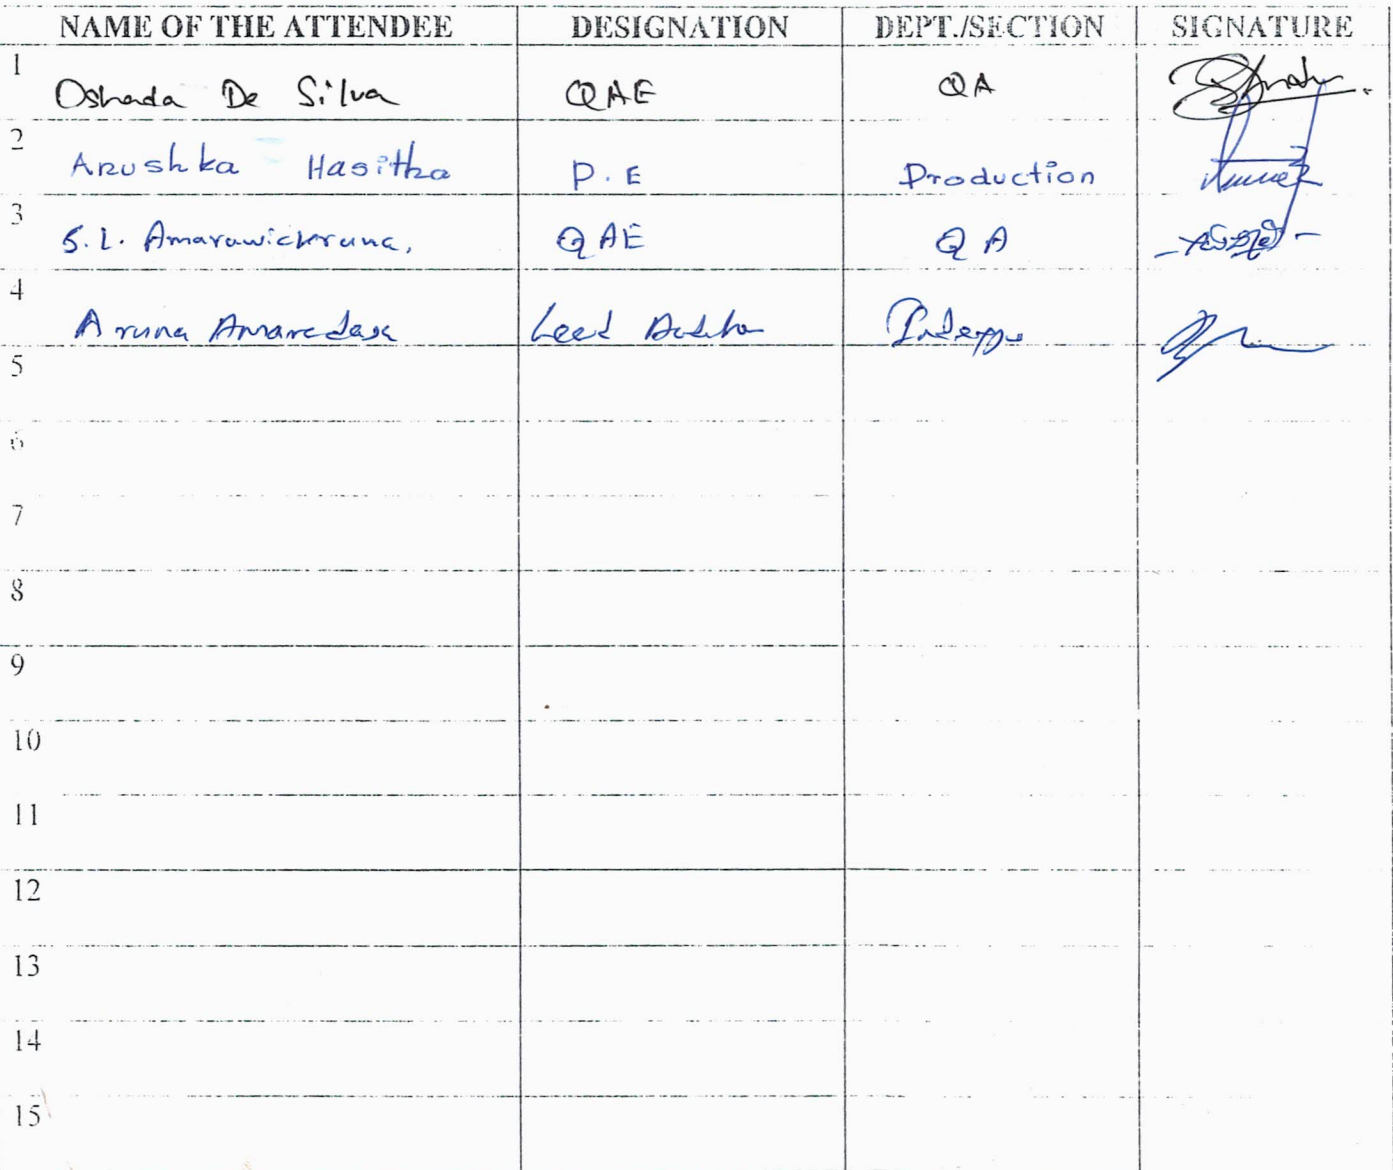 NAME OF THE ATTENDEE DESIGNATION DEPT./SECTION SIGNATURE
1 Oshada De Silva QAE QA
2 Anushka Hasitha P.E Production
3 S.L. Amarawickrama, QAE QA
4 Aruna Amaradasa Lead
5
6
7
8
9
10
11
12
13
14
15